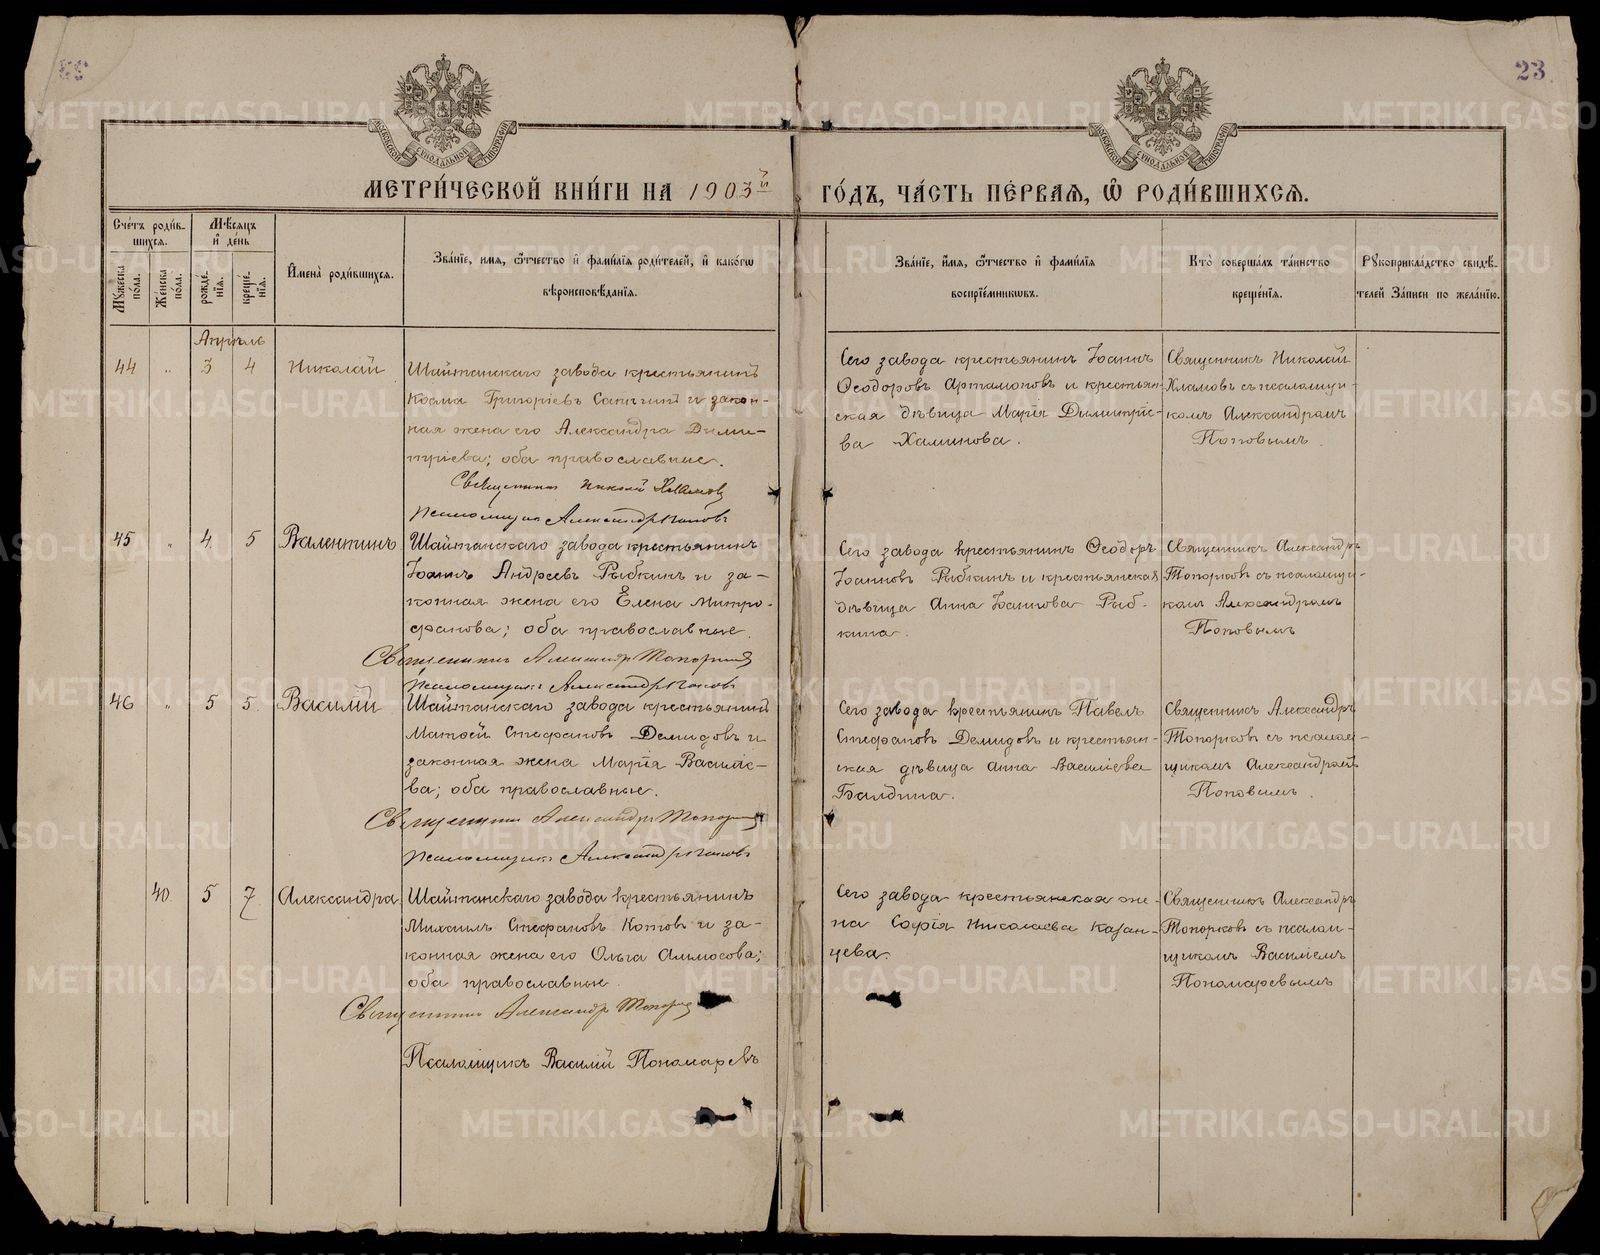 23
МЕТРИ́ЧЕСКОЙ КНИ́ГИ НА 1903й ГО́ДЪ, ЧА́СТЬ ПЕ́РВАѦ, Ѽ РОДИ́ВШИХСѦ.
МОСКОВСКОЙ СѴНОДАЛЬНОЙ ТИПОГРАФІИ
МОСКОВСКОЙ СѴНОДАЛЬНОЙ ТИПОГРАФІИ
Сче́тъ роди́в-
шихсѧ.
Мѣ́сѧцъ
и҆ де́нь
Мꙋ́жеска
по́ла.
Же́нска
по́ла.
рожде́-
нїѧ.
креще́-
нїѧ.
И҆мена̀ роди́вшихсѧ.
Зва́нїе, и҆мѧ, ѻ҆́тчество и҆ фами́лїѧ роди́телей, и҆ како́гѡ
вѣроисповѣ́данїѧ.
Зва́нїе, и҆́мѧ, ѻ҆́тчество и҆ фами́лїѧ
воспрїе́мникѡвъ.
Кто̀ соверша́лъ та́инство
креще́нїѧ.
Рꙋкоприкла́дство свидѣ́-
телей За́писи по жела́нїю.
Апрѣль
44 " 3 4 Николай
Шайтанскаго завода крестьянинъ
Косма Григоріевъ и закон-
ная жена его Александра Дими-
тріева; оба православные.
Священникъ Николай Хламовъ
Псаломщикъ Александръ Поповъ
Сего завода крестьянинъ Іоаннъ
Ѳеодоровъ Артамоновъ и крестьян-
ская дѣвица Марія Димитріе-
ва Халинова.
Священникъ Николай
Хламовъ съ псаломщи-
комъ Александромъ
Поповымъ.
45 " 4 5 Валентинъ
Шайтанскаго завода крестьянинъ
Іоаннъ Андреевъ Рыбкинъ и за-
конная жена его Елена Митро-
фанова; оба православные.
Священникъ Александръ Топорковъ
Псаломщикъ Александръ Поповъ
Сего завода крестьянинъ Ѳеодоръ
Іоанновъ Рыбкинъ и крестьянская
дѣвица Анна Іоаннова Рыб-
кина.
Священникъ Александръ
Топорковъ съ псаломщи-
комъ Александромъ
Поповымъ
46 " 5 5 Василій
Шайтанскаго завода крестьянинъ
Матѳей Стефановъ Демидовъ и
законная жена Марія Василіе-
ва; оба православные.
Священникъ Александръ Топорковъ
Псаломщикъ Александръ Поповъ
Сего завода крестьянинъ Павелъ
Стефановъ Демидовъ и крестьян-
ская дѣвица Анна Василіева
Балдина.
Священникъ Александръ
Топорковъ съ псалом-
щикомъ Александромъ
Поповымъ.
40 5 7 Александра
Шайтанскаго завода крестьянинъ
Михаилъ Стефановъ Котовъ и за-
конная жена его Ольга Аммосова;
оба православные.
Священникъ Александръ Топорковъ
Псаломщикъ Василій Пономаревъ
Сего завода крестьянская же-
на Софія Николаева Казан-
цева.
Священникъ Александръ
Топорковъ съ псалом-
щикомъ Василіемъ
Пономаревымъ
METRIKI.GASO-URAL.RU